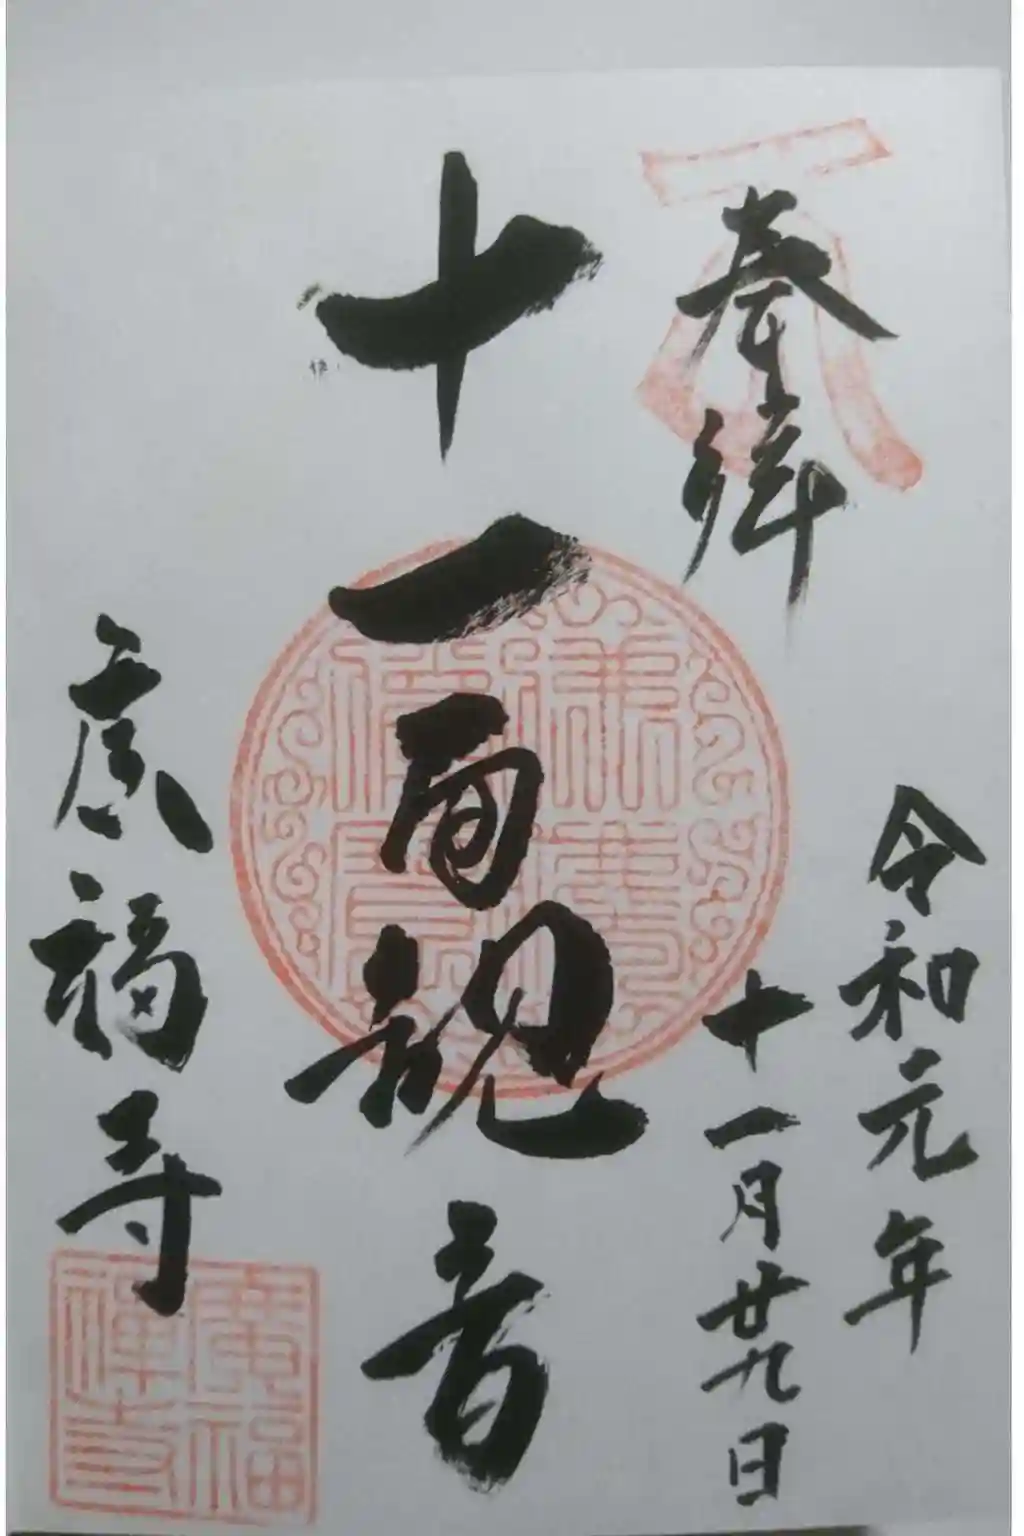 奉拝
令和元年
十一月廿九日
十一面観音
廣福寺
廣福
禪寺